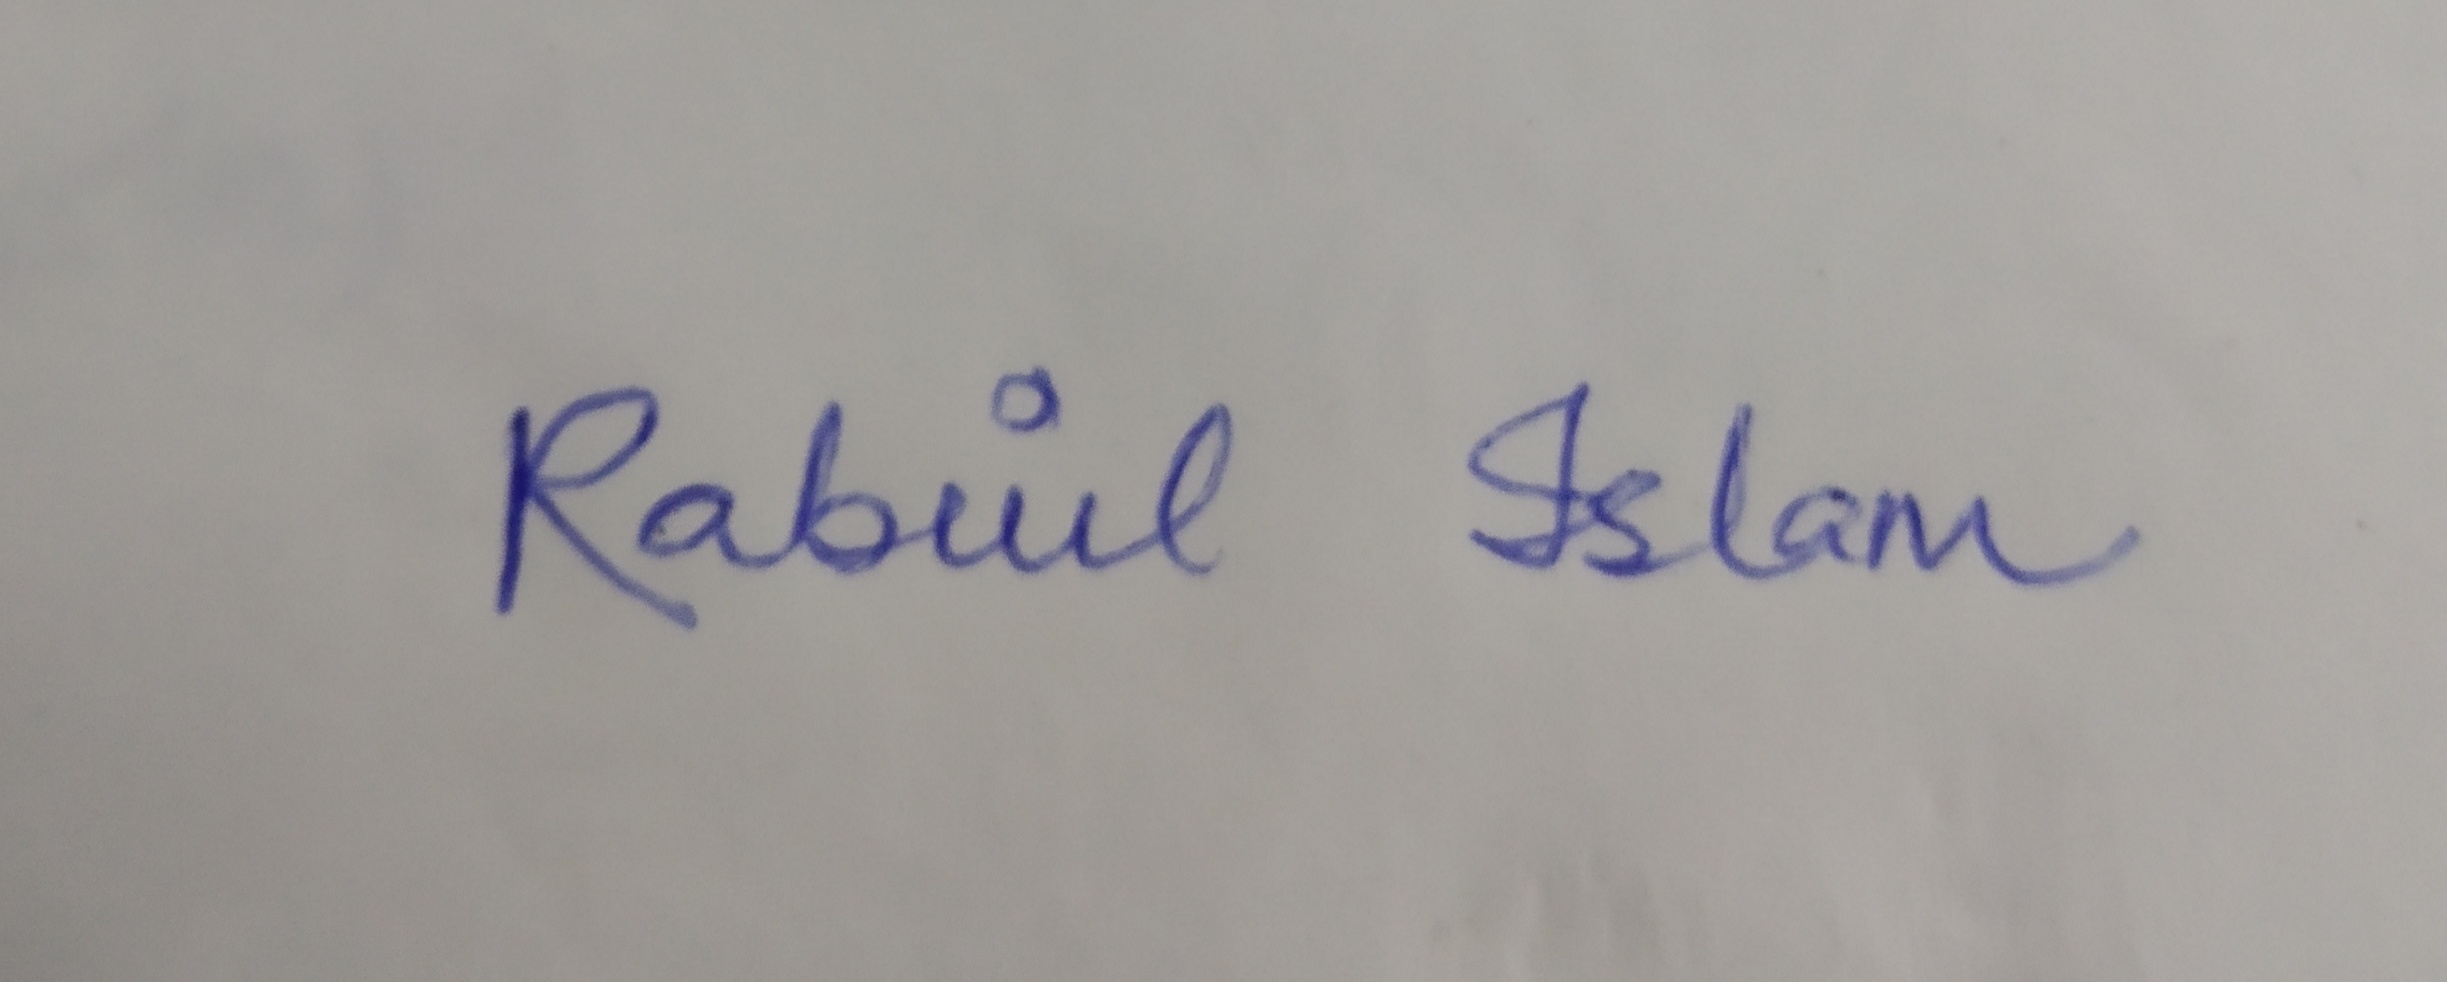 Rabiul Islam